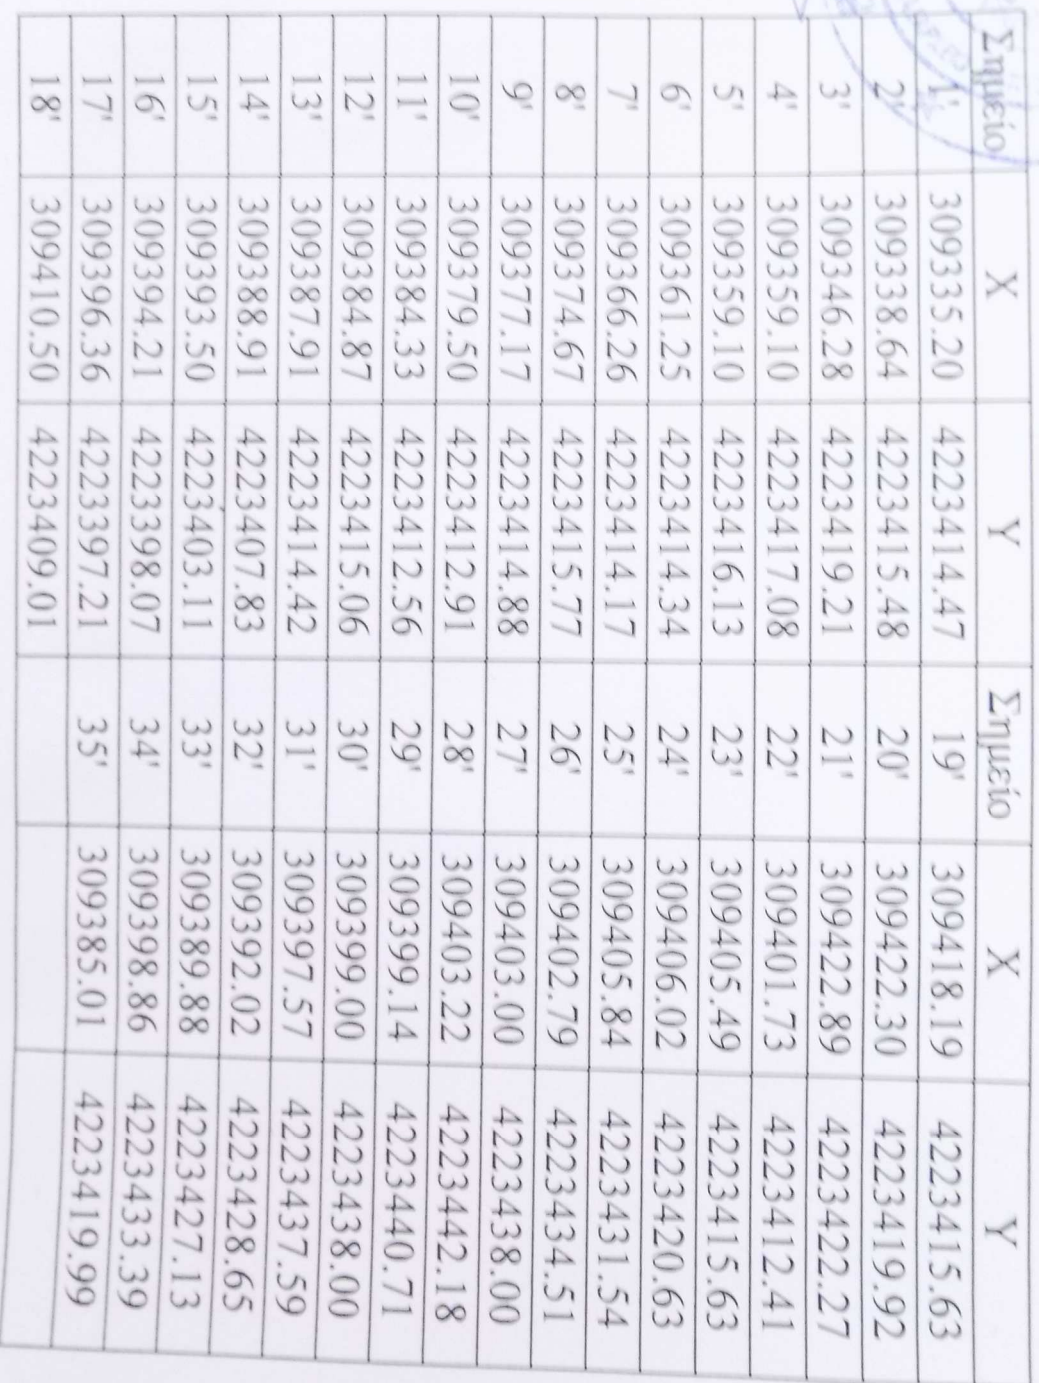 Σημείο X Y Σημείο X Y
1' 309335.20 4223414.47 19' 309418.19 4223415.63
2' 309338.64 4223415.48 20' 309422.30 4223419.92
3' 309346.28 4223419.21 21' 309422.89 4223422.27
4' 309359.10 4223417.08 22' 309401.73 4223412.41
5' 309359.10 4223416.13 23' 309405.49 4223415.63
6' 309361.25 4223414.34 24' 309406.02 4223420.63
7' 309366.26 4223414.17 25' 309405.84 4223431.54
8' 309374.67 4223415.77 26' 309402.79 4223434.51
9' 309377.17 4223414.88 27' 309403.00 4223438.00
10' 309379.50 4223412.91 28' 309403.22 4223442.18
11' 309384.33 4223412.56 29' 309399.14 4223440.71
12' 309384.87 4223415.06 30' 309399.00 4223438.00
13' 309387.91 4223414.42 31' 309397.57 4223437.59
14' 309388.91 4223407.83 32' 309392.02 4223428.65
15' 309393.50 4223403.11 33' 309389.88 4223427.13
16' 309394.21 4223398.07 34' 309398.86 4223433.39
17' 309396.36 4223397.21 35' 309385.01 4223419.99
18' 309410.50 4223409.01